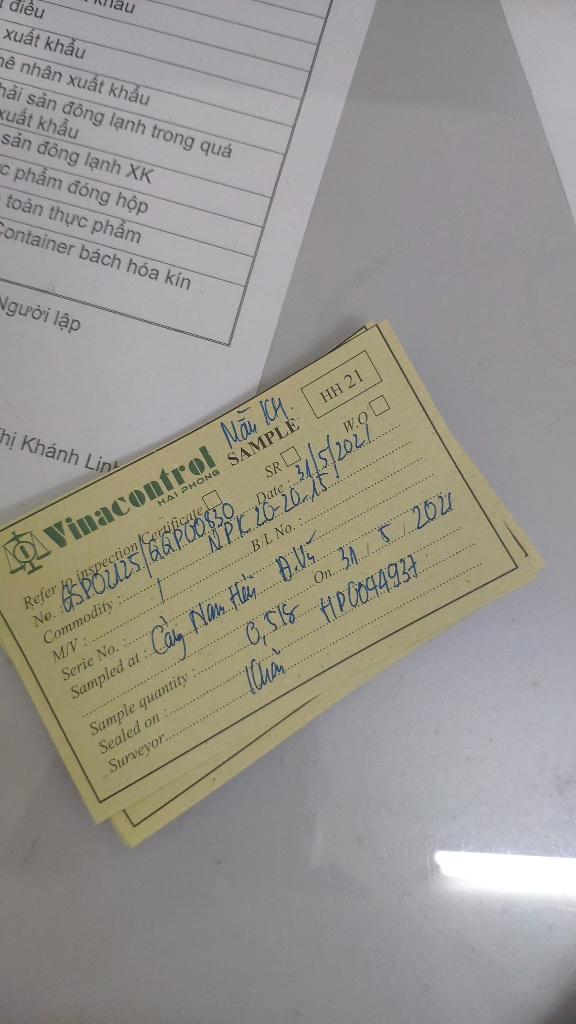 khẩu
điều
xuất khẩu
nhân xuất khẩu
hải sản đông lạnh trong quá
xuất khẩu
sản đông lạnh XK
phẩm đóng hộp
toàn thực phẩm
Container bách hóa kín
Người lập
Thị Khánh Linh
Vinacontrol
HAI PHONG
Mẫu KH
SAMPLE
HH 21
SR
W.O
Refer to inspection Certificate
No. GSP02125/GGP00830 Date : 31/5/2021
Commodity : NPK 20-20-15
M/V : / B/L No. :
Serie No. :
Sampled at : Cảng Nam Hải Đ.Vũ On 31 / 5 / 2021
Sample quantity :
Sealed on : HP0044937
Surveyor